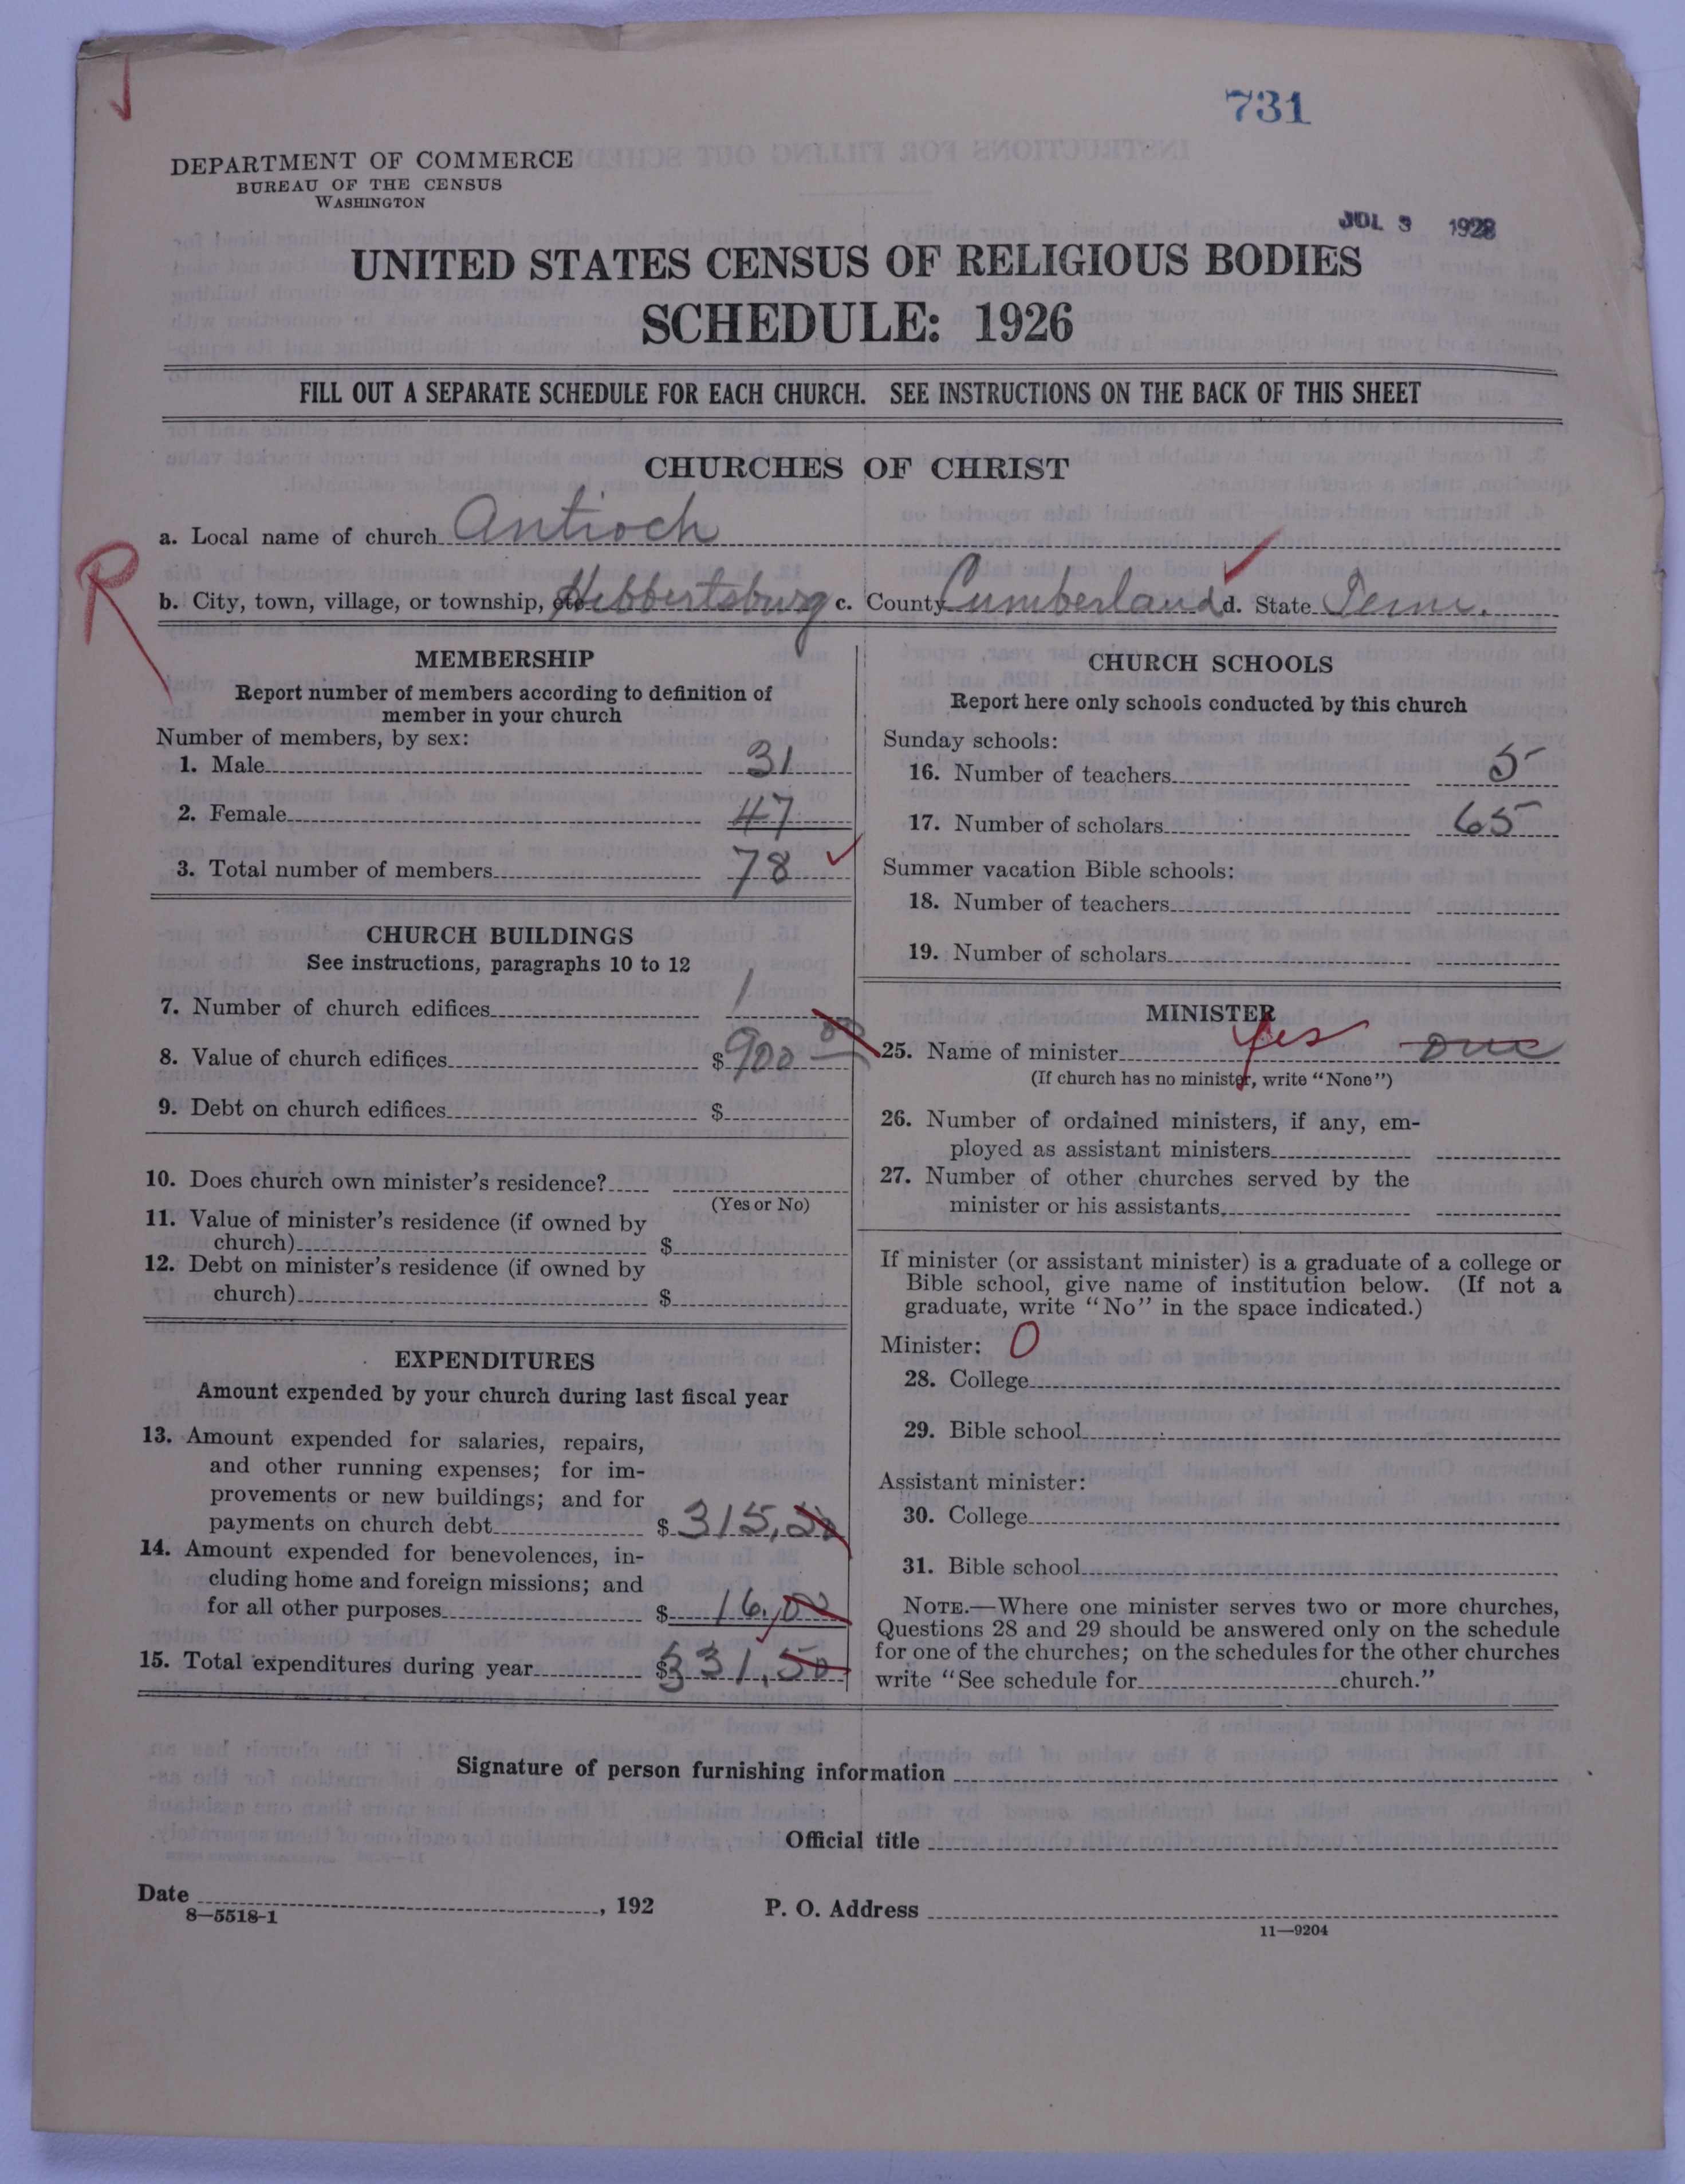 731
DEPARTMENT OF COMMERCE
BUREAU OF THE CENSUS
WASHINGTON
JUL 3 1928
UNITED STATES CENSUS OF RELIGIOUS BODIES
SCHEDULE: 1926
FILL OUT A SEPARATE SCHEDULE FOR EACH CHURCH. SEE INSTRUCTIONS ON THE BACK OF THIS SHEET
CHURCHES OF CHRIST
a. Local name of church Antioch
R
b. City, town, village, or township, etc. Hebbertsburg c. County Cumberland d. State Tenn.
MEMBERSHIP
Report number of members according to definition of
member in your church
Number of members, by sex:
1. Male 31
2. Female 47
3. Total number of members 78
CHURCH BUILDINGS
See instructions, paragraphs 10 to 12
7. Number of church edifices 1
8. Value of church edifices $ 900 00
9. Debt on church edifices $
10. Does church own minister's residence?
(Yes or No)
11. Value of minister's residence (if owned by
church) $
12. Debt on minister's residence (if owned by
church) $
EXPENDITURES
Amount expended by your church during last fiscal year
13. Amount expended for salaries, repairs,
and other running expenses; for im-
provements or new buildings; and for
payments on church debt $ 315,50
14. Amount expended for benevolences, in-
cluding home and foreign missions; and
for all other purposes $ 16,00
15. Total expenditures during year $ 331,50
CHURCH SCHOOLS
Report here only schools conducted by this church
Sunday schools:
16. Number of teachers 5
17. Number of scholars 65
Summer vacation Bible schools:
18. Number of teachers
19. Number of scholars
MINISTER
25. Name of minister yes one
(If church has no minister, write "None")
26. Number of ordained ministers, if any, em-
ployed as assistant ministers
27. Number of other churches served by the
minister or his assistants
If minister (or assistant minister) is a graduate of a college or
Bible school, give name of institution below. (If not a
graduate, write "No" in the space indicated.)
Minister: 0
28. College
29. Bible school
Assistant minister:
30. College
31. Bible school
NOTE.—Where one minister serves two or more churches,
Questions 28 and 29 should be answered only on the schedule
for one of the churches; on the schedules for the other churches
write "See schedule for church."
Signature of person furnishing information
Official title
Date , 192 P. O. Address
8—5518-1
11—9204